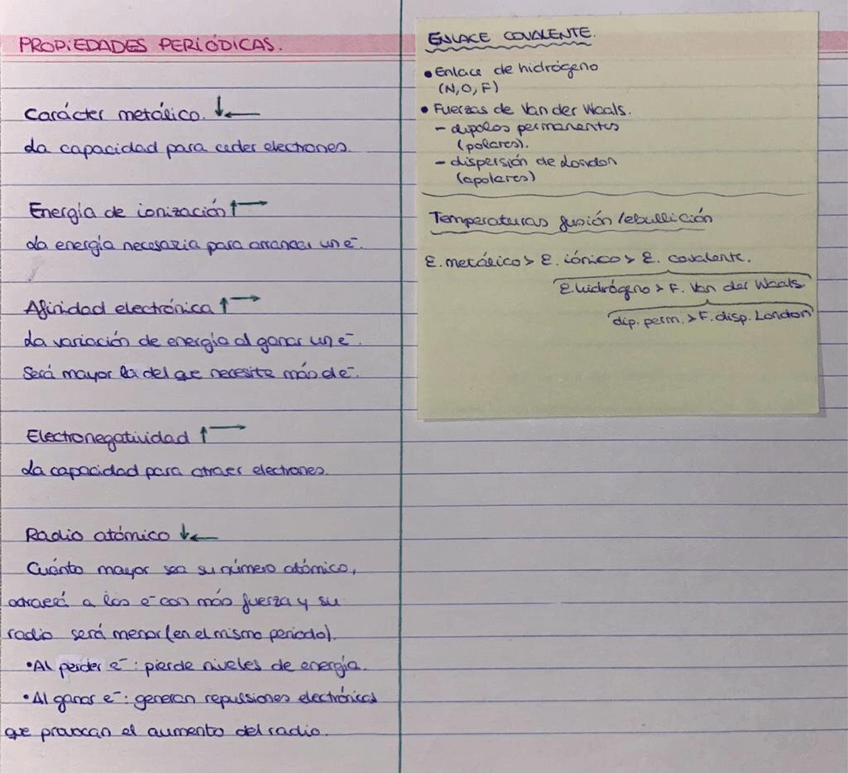 PROPIEDADES PERIÓDICAS.
Carácter metálico. ↓←
La capacidad para ceder electrones.
Energía de ionización ↑→
La energía necesaria para arrancar un e⁻.
Afinidad electrónica ↑→
La variación de energía al ganar un e⁻.
Será mayor la del que necesite más de⁻.
Electronegatividad ↑→
La capacidad para atraer electrones.
Radio atómico ↓←
Cuánto mayor sea su número atómico,
atraerá a los e⁻ con más fuerza y su
radio será menor (en el mismo periodo).
•Al perder e⁻: pierde niveles de energía.
•Al ganar e⁻: generan repulsiones electrónicas
que provocan el aumento del radio.
ENLACE COVALENTE.
• Enlace de hidrógeno
(N, O, F)
• Fuerzas de Van der Waals.
- dipolos permanentes
(polares).
- dispersión de London
(apolares)
Temperaturas fusión/ebullición
E. metálico > E. iónico > E. covalente.
E. hidrógeno > F. Van der Waals
dip. perm. > F. disp. London